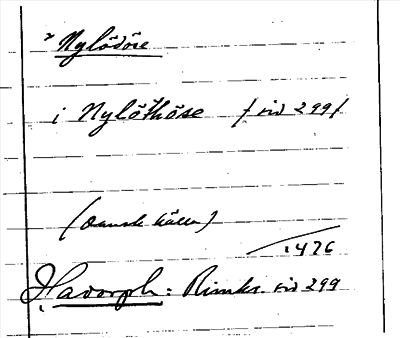 Nylödöse
i Nylöthöse / sid 299/
(Dansk källa)
1476
Hadorph: Rimkr. sid 299